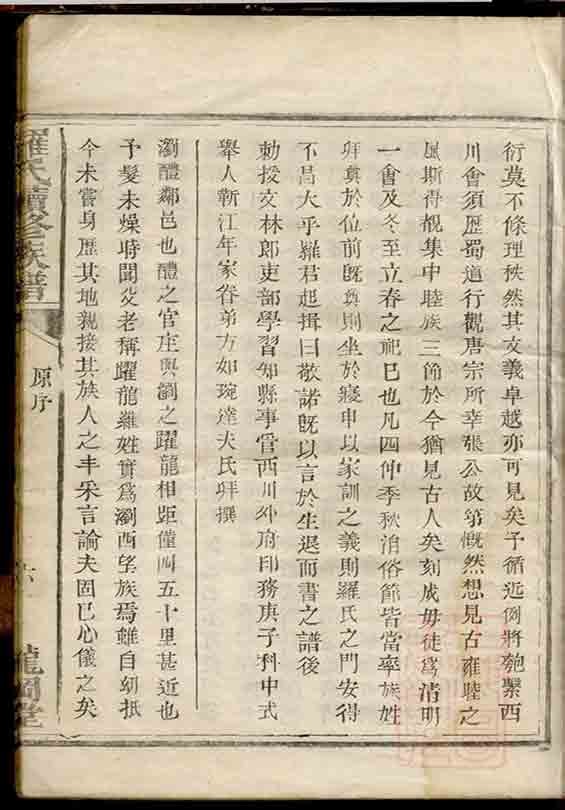 衍莫不條理秩然其文義卓越亦可見矣予循近例將匏繫西
川會須歷蜀道行觀唐宗所幸張公故第慨然想見古雍睦之
風斯得覩集中睦族三節於今猶見古人矣刻成毋徒爲清明
一會及冬至立春之祀已也凡四仲季秋消俗節皆當率族姓
拜奠於位前旣奠則坐於寢申以家訓之義則羅氏之門安得
不昌大乎羅君起揖曰敬諾旣以言於生退而書之譜後
勅授文林郎吏部學習知縣事嘗西川 府印務庚子科中式
舉人靳江年家眷弟方如琬達夫氏拜撰
瀏醴鄰邑也醴之官庄與瀏之躍龍相距僅四五十里甚近也
予髮未燥時聞父老稱躍龍羅姓實爲瀏西望族焉雖自幼抵
今未嘗身歷其地親接其族人之丰采言論夫固已心儀之矣
羅氏續修族譜
原序
六
龍 堂